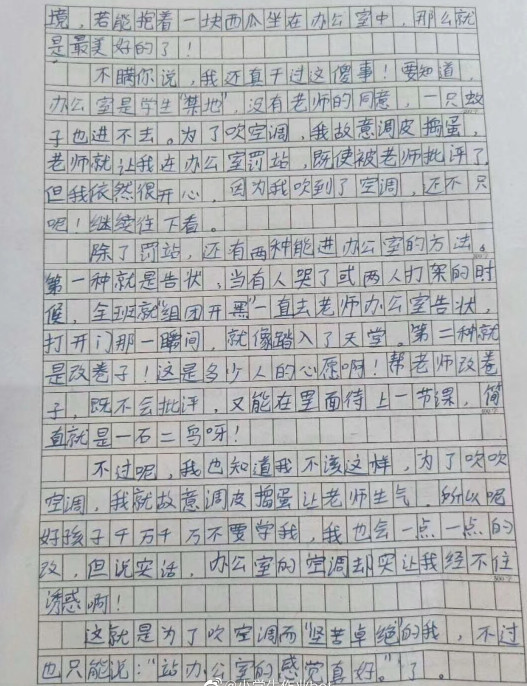 境，若能抱着一块西瓜坐在办公室中，那么就
是最美好的了！
不瞒你说，我还真干过这傻事！要知道，
办公室是学生"禁地"，没有老师的同意，一只蚊
子也进不去。为了吹空调，我故意调皮捣蛋，
老师就让我在办公室罚站，既使被老师批评了
但我依然很开心，因为我吹到了空调，还不只
呢！继续往下看。
除了罚站，还有两种能进办公室的方法。
第一种就是告状，当有人哭了或两人打架的时
候，全班就"组团开黑"一直去老师办公室告状，
打开门那一瞬间，就像踏入了天堂。第二种就
是改卷子！这是多少人的心愿啊！帮老师改卷
子，既不会批评，又能在里面待上一节课，简
直就是一石二鸟呀！
不过呢，我也知道我不该这样，为了吹吹
空调，我就故意调皮捣蛋让老师生气。所以呢
好孩子千万千万不要学我，我也会一点一点的
改，但说实话，办公室的空调却实让我经不住
诱惑啊！
这就是为了吹空调而"坚苦卓绝"的我，不过
也只能说："站办公室的感觉真好。"了。